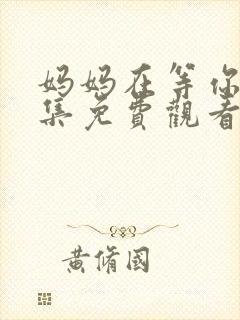 妈妈在等你
集免費觀看
黄脩國